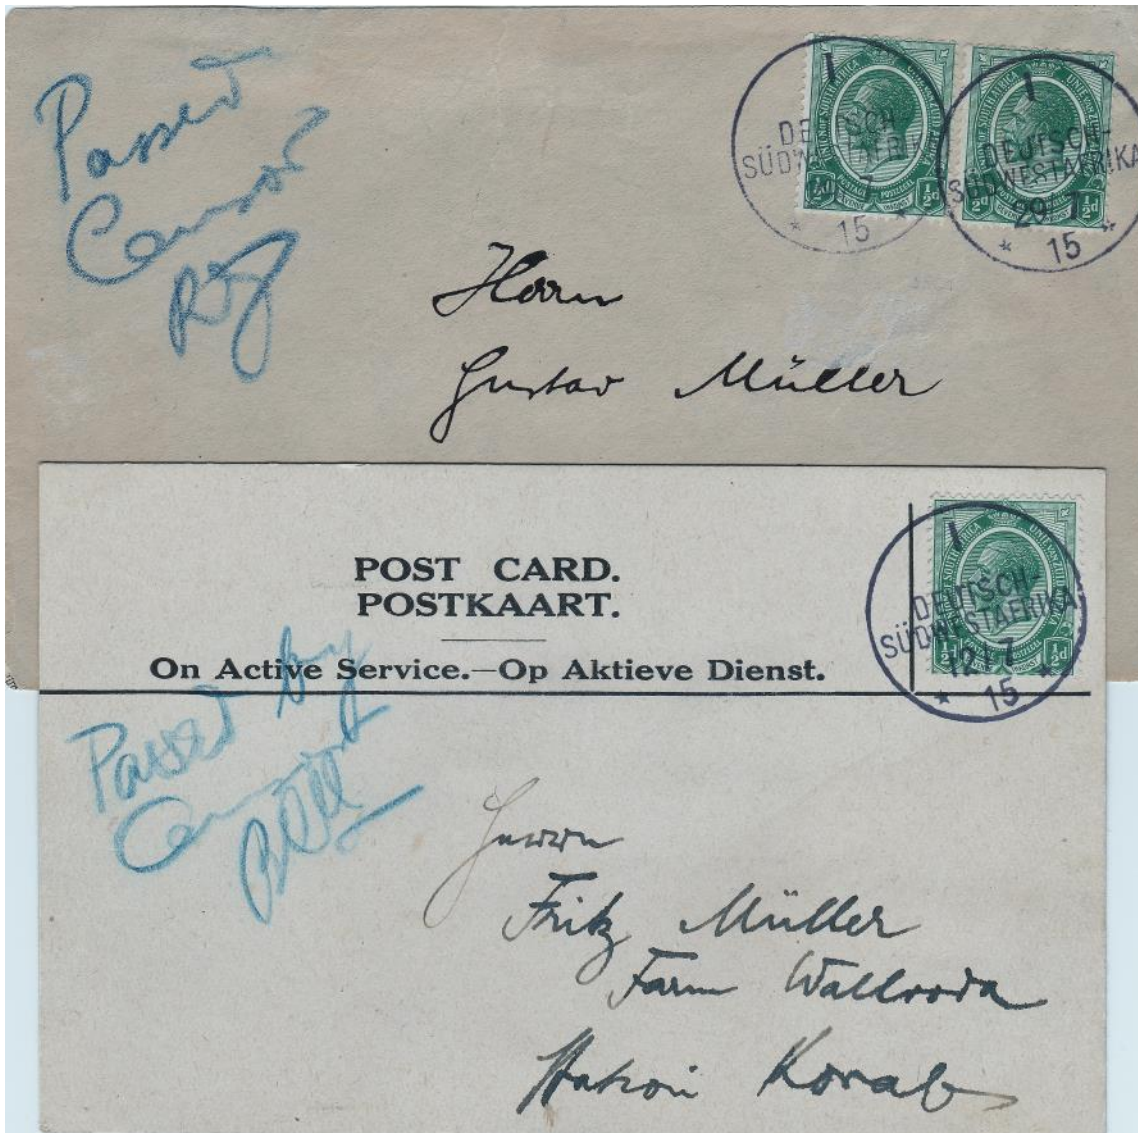 Passed
Censor
1
DEUTSCH-
SÜDWESTAFRIKA
7
* 15 *
1
DEUTSCH-
SÜDWESTAFRIKA
29 7
* 15 *
½d POSTAGE POSTZEGEL ½d
½d POSTAGE POSTZEGEL ½d
Herrn
Gustav Müller
POST CARD.
POSTKAART.
On Active Service.—Op Aktieve Dienst.
1
DEUTSCH-
SÜDWESTAFRIKA
7
* 15 *
½d ½d
Passed by
Censor
Herrn
Fritz Müller
Farm Wallroda
Station Korab